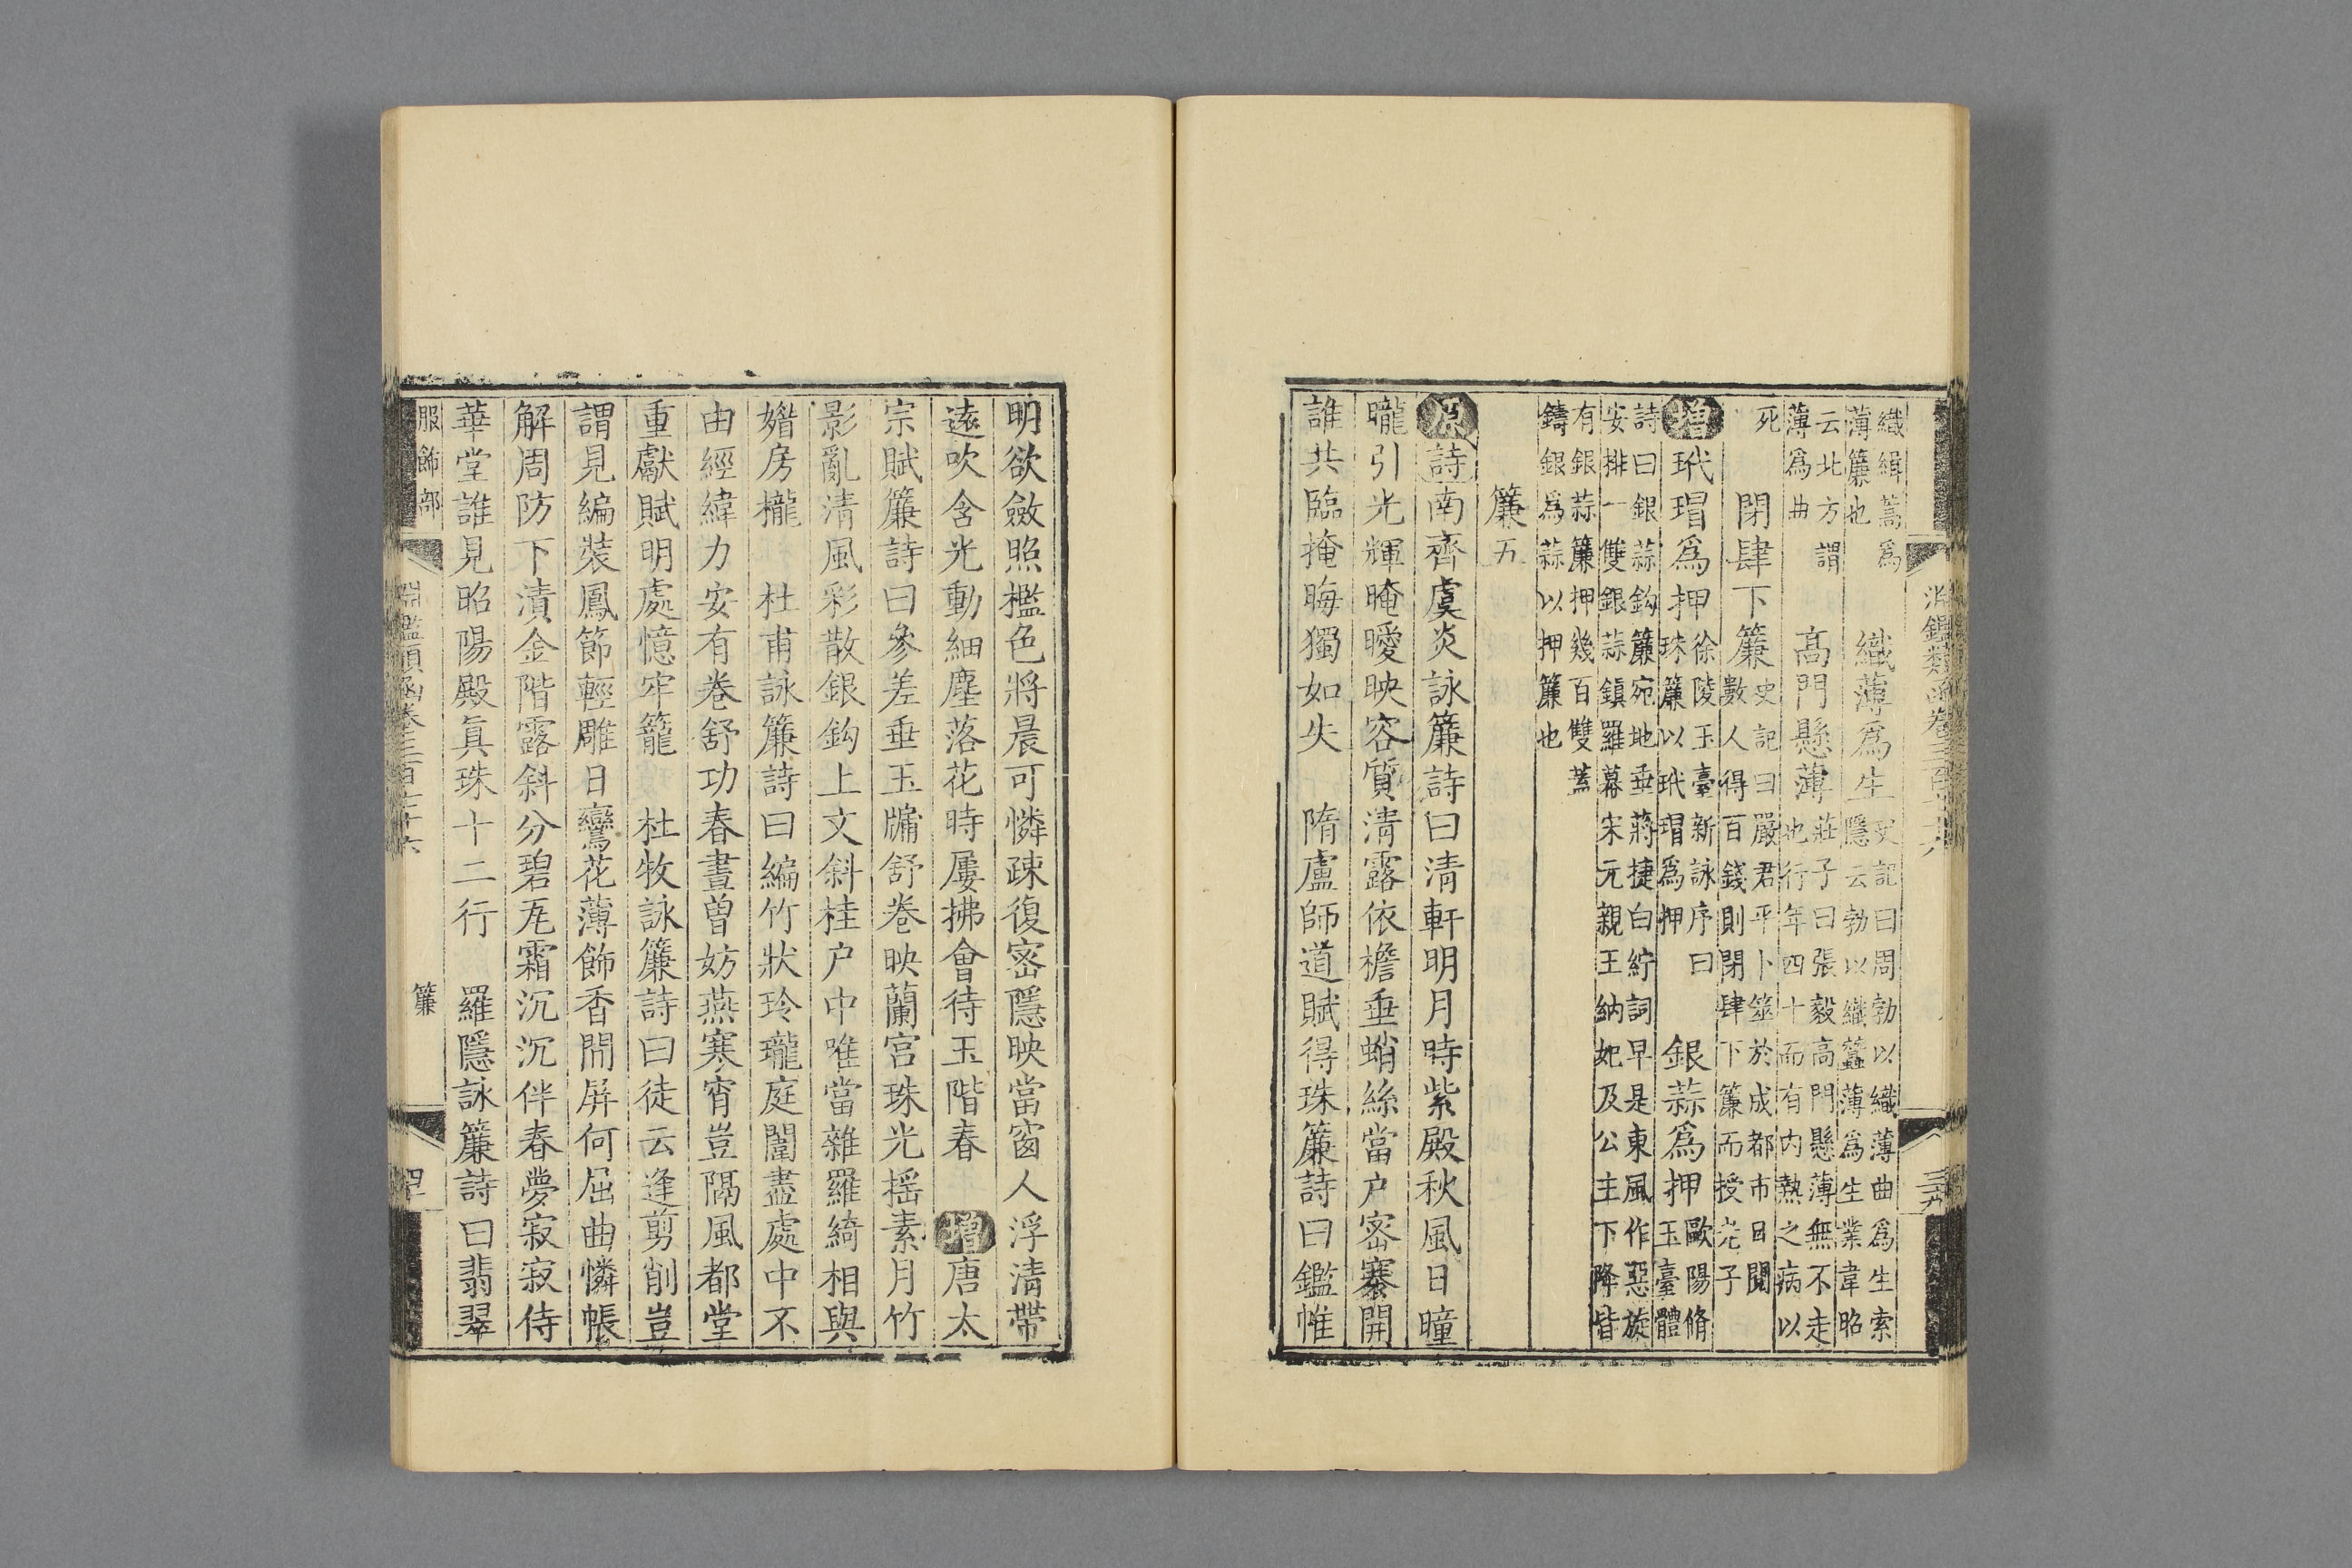 淵鑑類函卷三百七十六 三九
織緝蒿爲
薄簾也
織薄爲生
史記曰周勃以織薄曲爲生索
隱云勃以織蠶薄爲生業韋昭
云北方謂
薄爲曲
高門懸薄
莊子曰張毅高門懸薄無不走
也行年四十而有内熱之病以
死
閉肆下簾
史記曰嚴君平卜筮於成都市日閱
數人得百錢則閉肆下簾而授老子
增玳瑁爲押
徐陵玉臺新詠序曰
珠簾以玳瑁爲押
銀蒜爲押
歐陽脩
玉臺體
詩曰銀蒜鈎簾宛地垂蔣捷白紵詞早是東風作惡旋
安排一雙銀蒜鎮羅幕宋元親王納妃及公主下降皆
有銀蒜簾押幾百雙蓋
鑄銀爲蒜以押簾也
簾五
原詩南齊虞炎詠簾詩曰清軒明月時紫殿秋風日曈
曨引光輝晻曖映容質清露依檐垂蛸絲當户密褰開
誰共臨掩晦獨如失 隋盧師道賦得珠簾詩曰鑑帷
明欲斂照檻色將晨可憐疎復密隱映當窗人浮清帶
遠吹含光動細塵落花時屢拂會待玉階春 增唐太
宗賦簾詩曰參差垂玉牖舒卷映蘭宫珠光摇素月竹
影亂清風彩散銀鈎上文斜桂户中唯當雜羅綺相與
媎房櫳 杜甫詠簾詩曰編竹狀玲瓏庭闈盡處中不
由經緯力安有卷舒功春晝曾妨燕寒宵豈隔風都堂
重獻賦明處憶牢籠 杜牧詠簾詩曰徒云逢剪削豈
謂見編裝鳳節輕雕日鸞花薄飾香問屏何屈曲憐帳
解周防下漬金階露斜分碧瓦霜沉沉伴春夢寂寂侍
華堂誰見昭陽殿真珠十二行 羅隱詠簾詩曰翡翠
服飾部 淵鑑類函卷三百七十六 簾